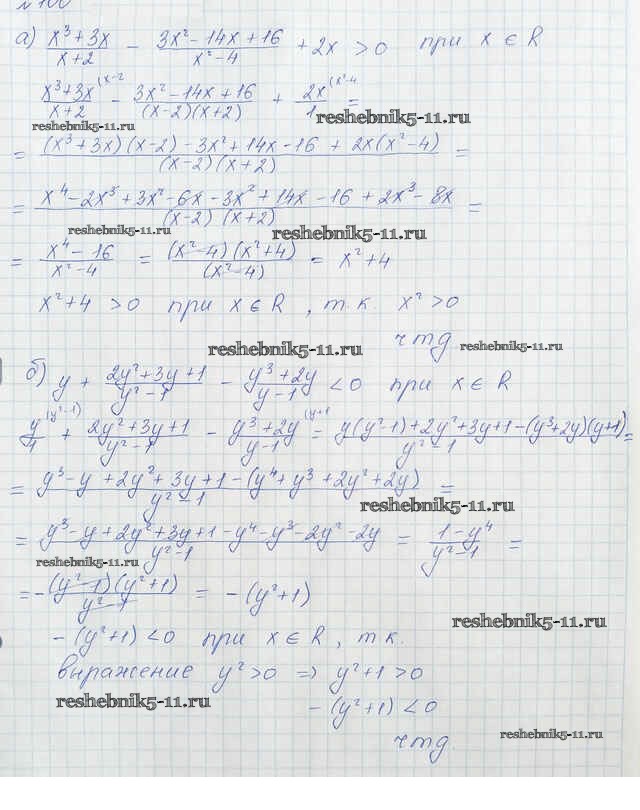 №100
а) (x³+3x)/(x+2) - (3x²-14x+16)/(x²-4) + 2x > 0 при x ∈ R
(x³+3x)/(x+2) (x-2 - (3x²-14x+16)/((x-2)(x+2)) + 2x/1 (x²-4 =
reshebnik5-11.ru reshebnik5-11.ru
= ((x³+3x)(x-2)-3x²+14x-16+2x(x²-4))/((x-2)(x+2)) =
= (x⁴-2x³+3x²-6x-3x²+14x-16+2x³-8x)/((x-2)(x+2)) =
reshebnik5-11.ru reshebnik5-11.ru
= (x⁴-16)/(x²-4) = ((x²-4)(x²+4))/(x²-4) = x²+4
x²+4 >0 при x ∈ R, т.к. x²>0
reshebnik5-11.ru чтд reshebnik5-11.ru
б) y + (2y²+3y+1)/(y²-1) - (y³+2y)/(y-1) <0 при x ∈ R
y/1 (y²-1) + (2y²+3y+1)/(y²-1) - (y³+2y)/(y-1) (y+1 = (y(y²-1)+2y²+3y+1-(y³+2y)(y+1))/(y²-1) =
= (y³-y+2y²+3y+1-(y⁴+y³+2y²+2y))/(y²-1) =
reshebnik5-11.ru
= (y³-y+2y²+3y+1-y⁴-y³-2y²-2y)/(y²-1) = (1-y⁴)/(y²-1) =
reshebnik5-11.ru
= -((y²-1)(y²+1))/(y²-1) = -(y²+1)
reshebnik5-11.ru
-(y²+1) <0 при x ∈ R, т к.
выражение y²>0 ⇒ y²+1 >0
reshebnik5-11.ru -(y²+1) <0
чтд. reshebnik5-11.ru